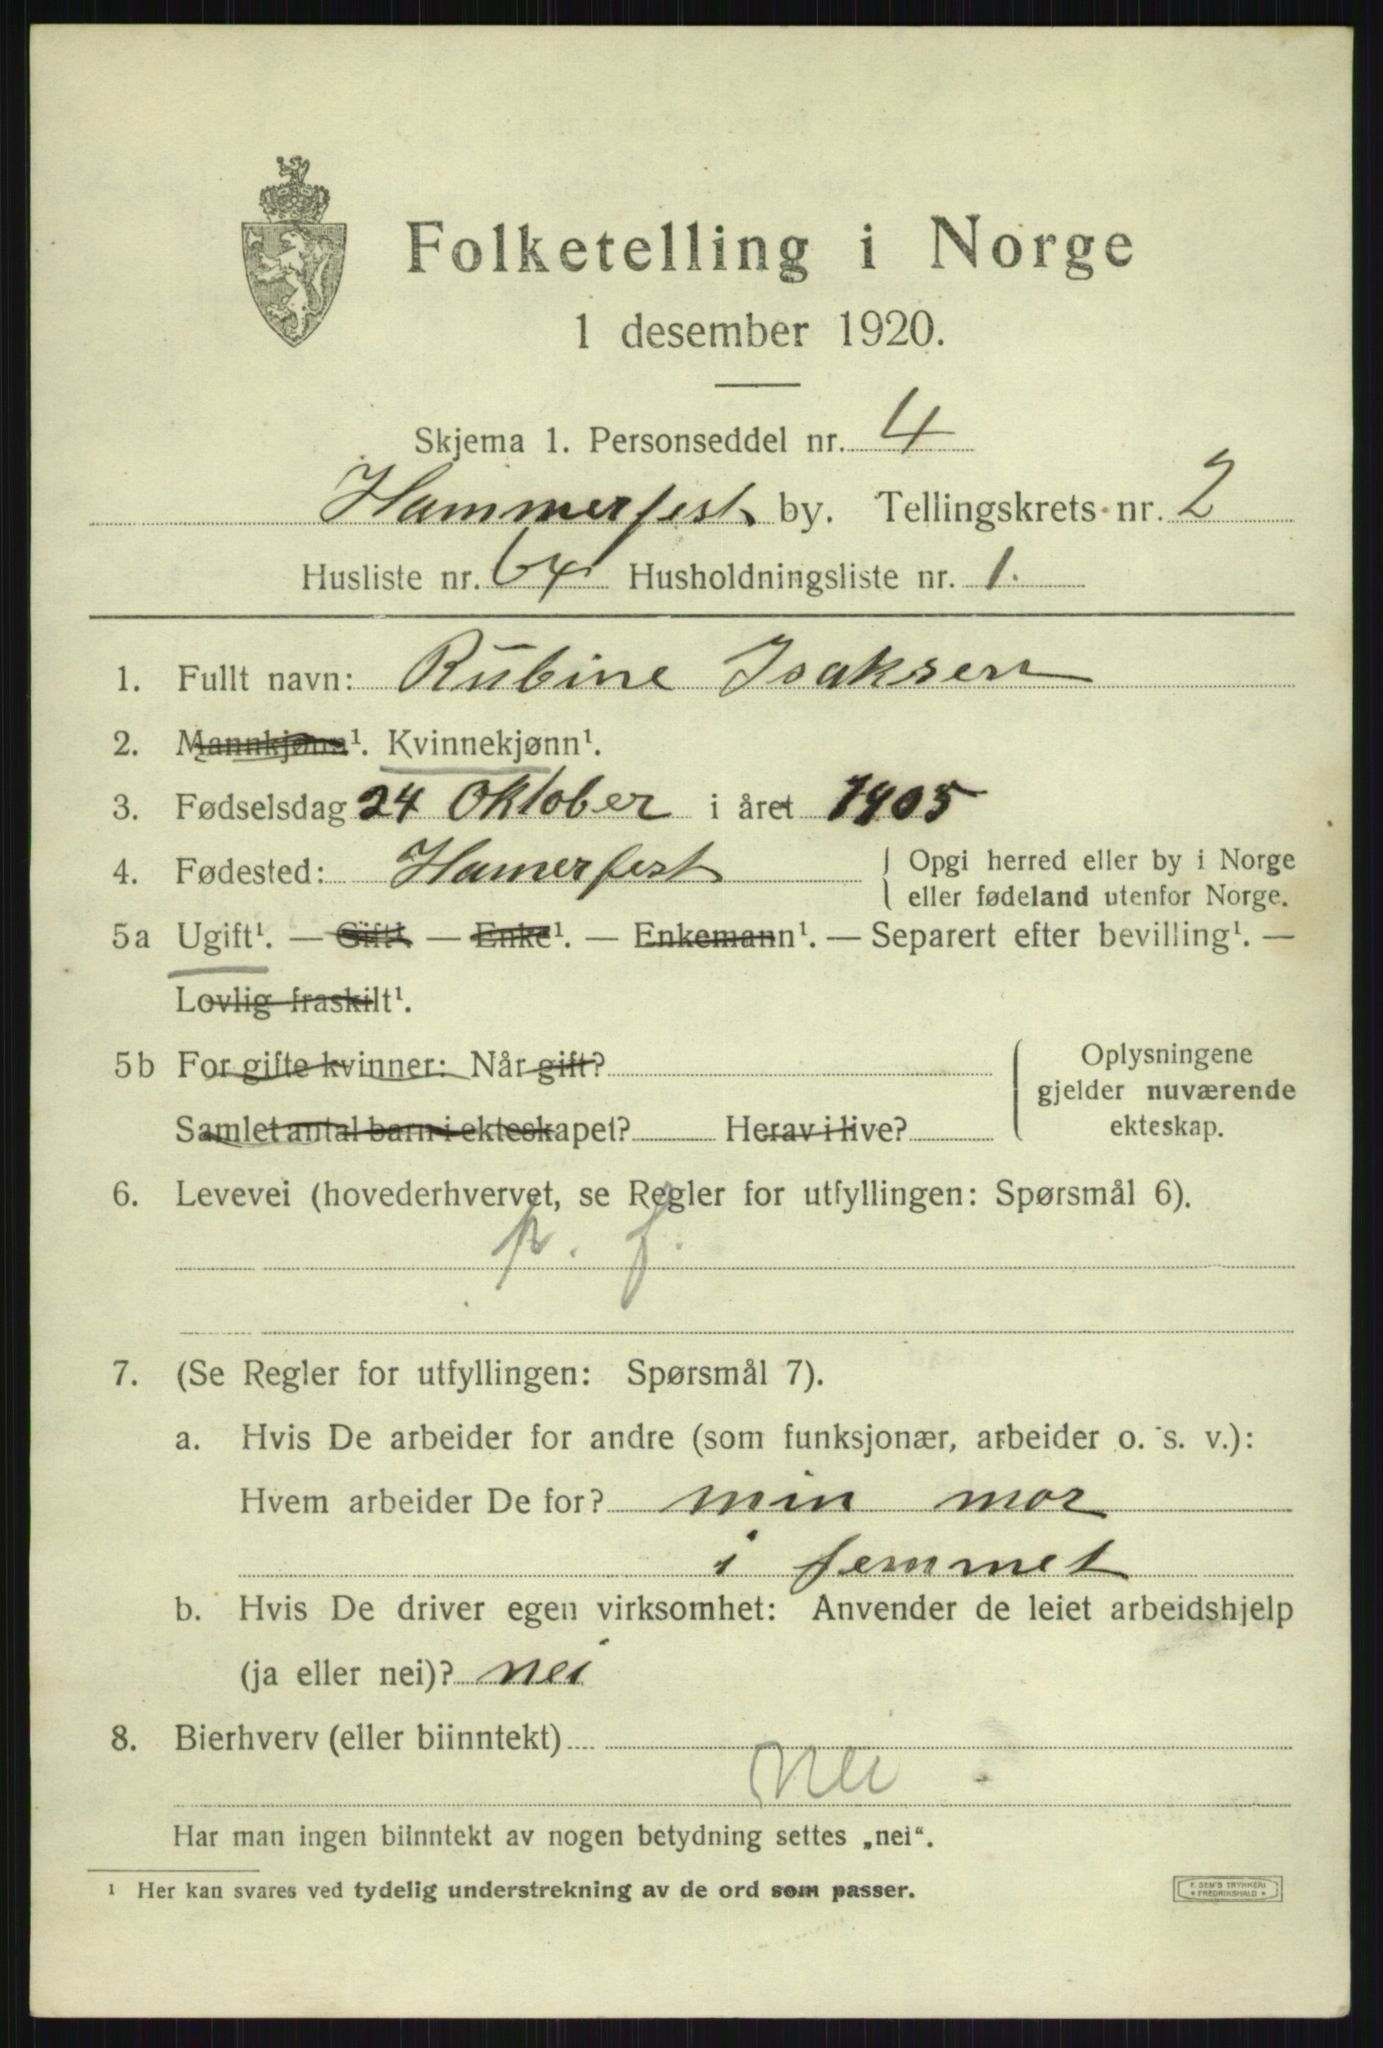 Folketelling i Norge
1 desember 1920.
Skjema 1. Personseddel nr. 4
Hammerfest by. Tellingskrets nr. 2
Husliste nr. 64 Husholdningsliste nr. 1.
1. Fullt navn: Rubine Isaksen
2. Mannkjønn¹. Kvinnekjønn¹.
3. Fødselsdag 24 Oktober i året 1905
4. Fødested: Hamerfest
Opgi herred eller by i Norge
eller fødeland utenfor Norge.
5a Ugift¹. — Gift¹ — Enke¹. — Enkemann¹. — Separert efter bevilling¹. —
Lovlig fraskilt¹.
5b For gifte kvinner: Når gift?
Samlet antal barn i ekteskapet? Herav i live?
Oplysningene
gjelder nuværende
ekteskap.
6. Levevei (hovederhvervet, se Regler for utfyllingen: Spørsmål 6).
p. f.
7. (Se Regler for utfyllingen: Spørsmål 7).
a. Hvis De arbeider for andre (som funksjonær, arbeider o. s. v.):
Hvem arbeider De for? min mor
i jemmet
b. Hvis De driver egen virksomhet: Anvender de leiet arbeidshjelp
(ja eller nei)? nei
8. Bierhverv (eller biinntekt)
nei
Har man ingen biinntekt av nogen betydning settes „nei“.
¹ Her kan svares ved tydelig understrekning av de ord som passer.
E. SEM'S TRYKKERI
* FREDRIKSHALD *